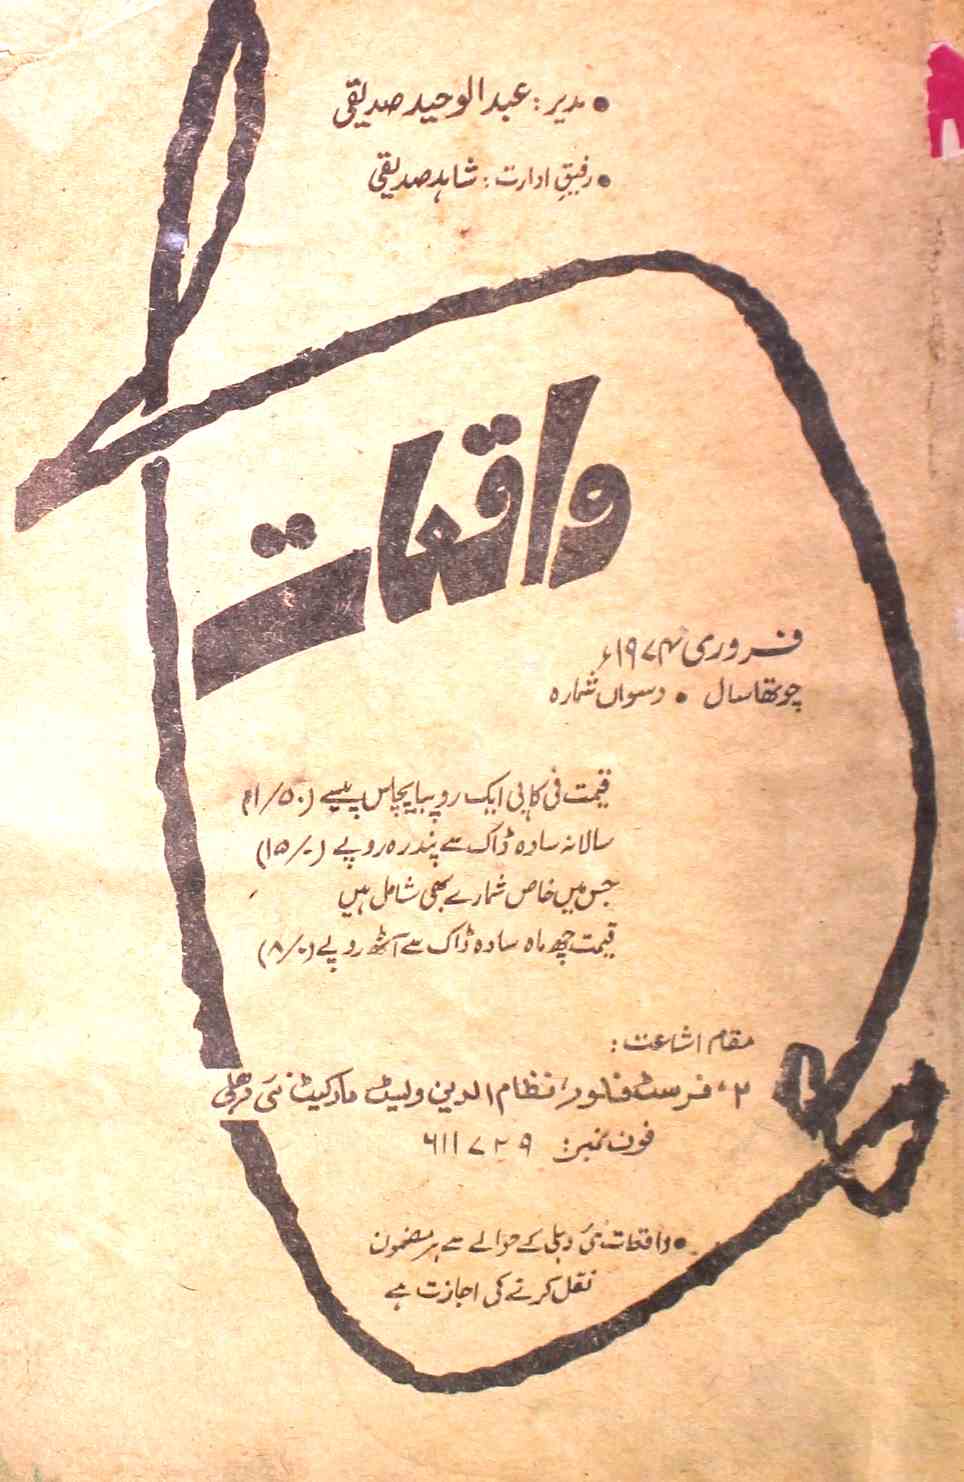 • مدیر: عبدالوحید صدیقی
• رفیقِ ادارت: شاہد صدیقی
واقعات
فروری ۱۹۷۴ء
چوتھا سال • دسواں شمارہ
قیمت فی کاپی ایک روپیا پچاس پیسے (۱/۵۰)
سالانہ سادہ ڈاک سے پندرہ روپے (۱۵/-)
جس میں خاص شمارے بھی شامل ہیں
قیمت چھ ماہ سادہ ڈاک سے آٹھ روپے (۸/-)
مقام اشاعت:
۲، فرسٹ فلور، نظام الدین ویسٹ مارکیٹ نئی دہلی
فون نمبر: ۶۱۱۷۲۹
• واقعات نئی دہلی کے حوالے سے ہر مضمون
نقل کرنے کی اجازت ہے